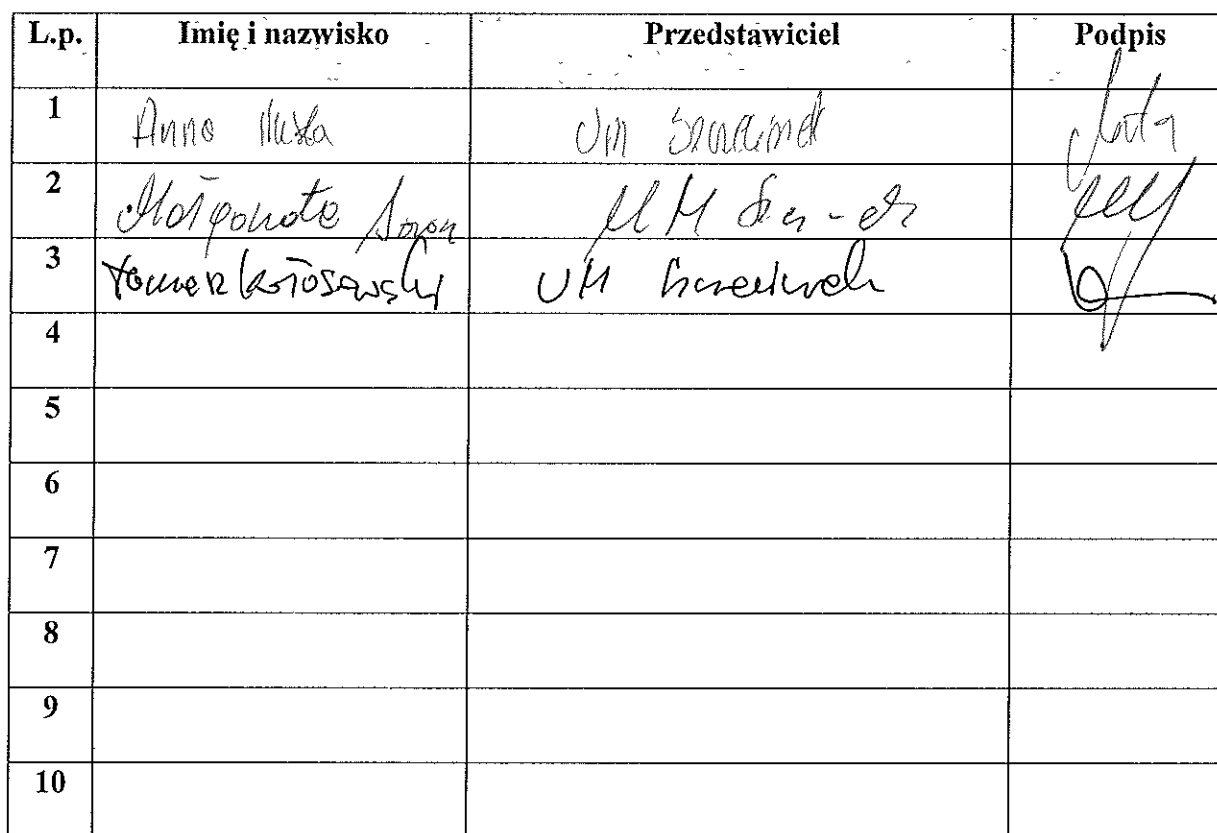 L.p. Imię i nazwisko Przedstawiciel Podpis
1 Anna UM Szczecinek
2 Małgorzata UM
3 Tomasz Kołosowski UM Szczecinek
4
5
6
7
8
9
10